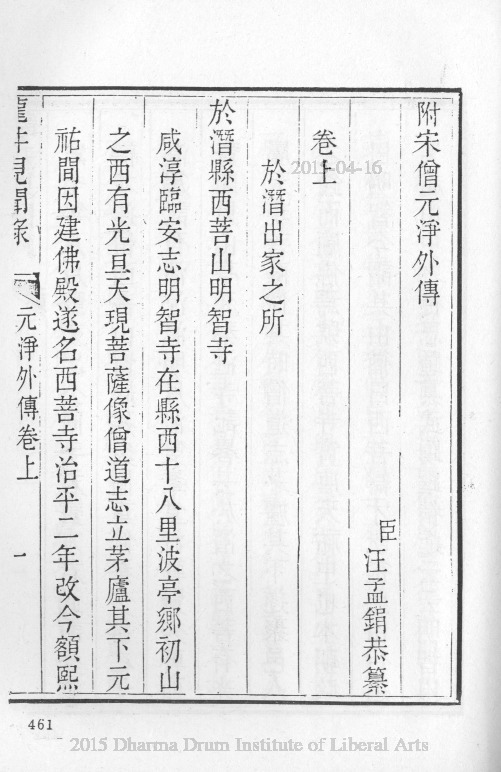 附宋僧元淨外傳
臣汪孟鋗恭纂
卷上
於潛出家之所
於潛縣西菩山明智寺
咸淳臨安志明智寺在縣西十八里波亭鄉初山
之西有光亘天現菩薩像僧道志立茅廬其下元
祐間因建佛殿遂名西菩寺治平二年改今額熙
龍井見聞錄
元淨外傳卷上
一
2015-04-16
461
2015 Dharma Drum Institute of Liberal Arts